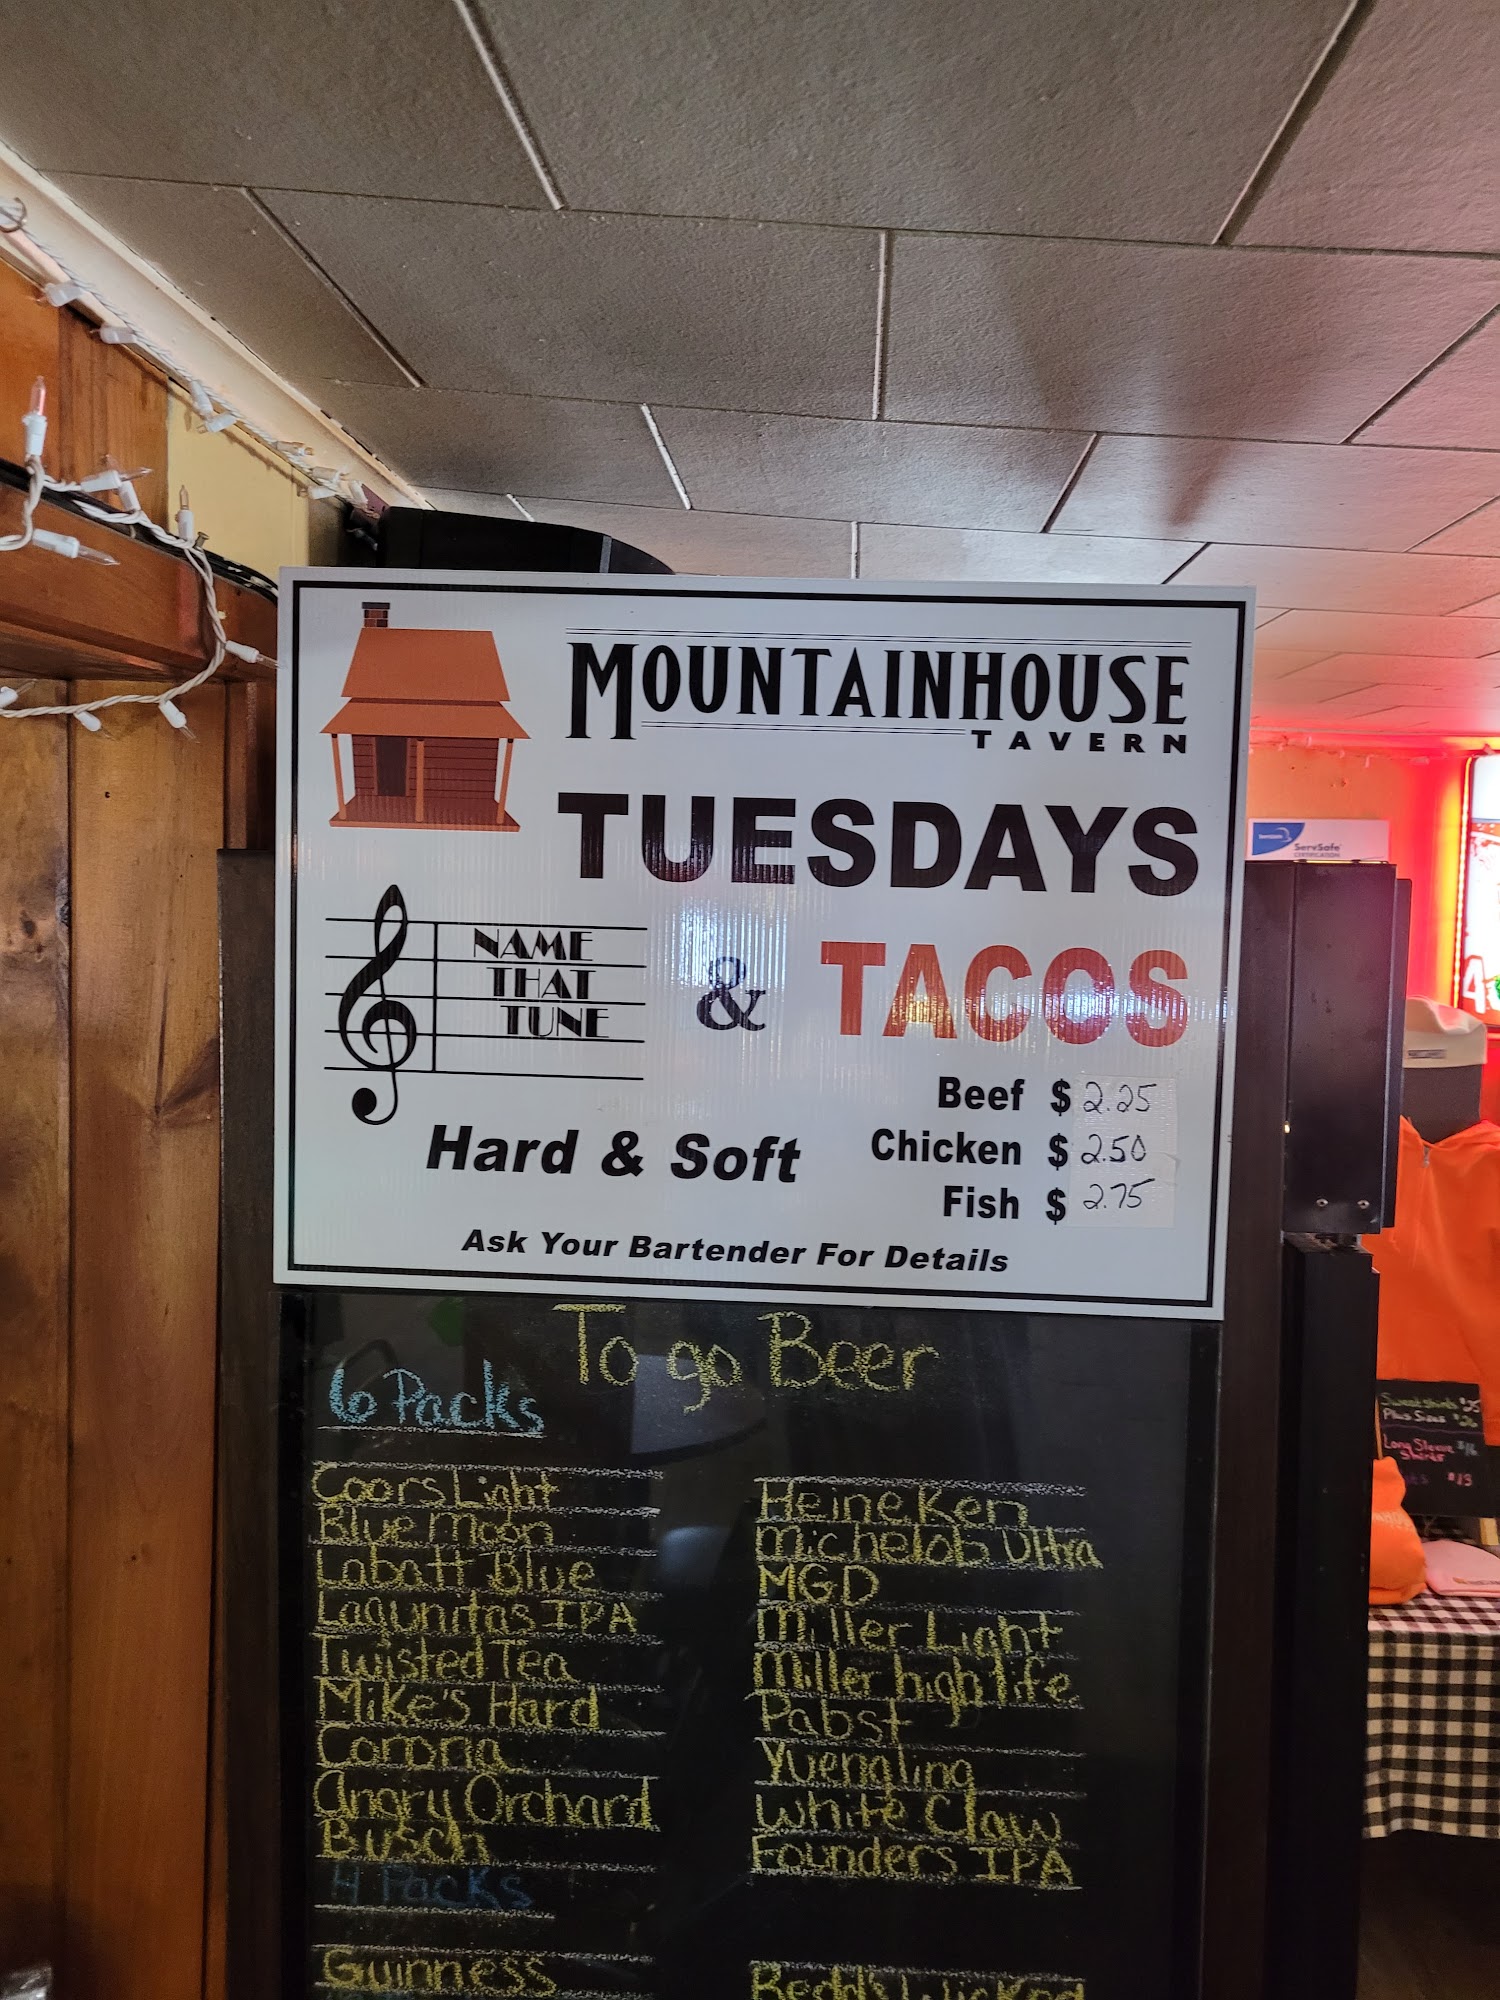 MOUNTAINHOUSE
TAVERN
TUESDAYS
NAME
THAT
TUNE
& TACOS
Beef $ 2.25
Chicken $ 2.50
Fish $ 2.75
Hard & Soft
Ask Your Bartender For Details
ServSafe
CERTIFICATION
To go Beer
6 Packs
Coors Light
Blue Moon
Labatt Blue
Lagunitas IPA
Twisted Tea
Mike's Hard
Corona
Angry Orchard
Busch
Heineken
Michelob Ultra
MGD
Miller Light
Miller high life
Pabst
Yuengling
White Claw
Founders IPA
4 Packs
Guinness
Redd's Wicked
Plus Sizes
Long Sleeve
Shirts
$13